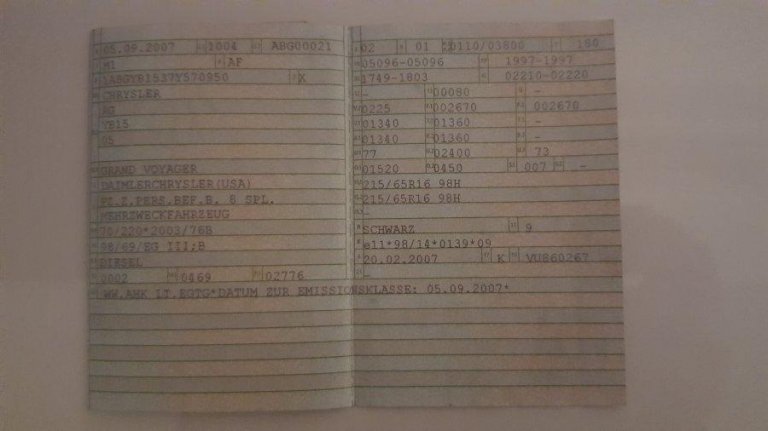 05.09.2007 1004 ABG00021
M1 AF
1A8GYB1537Y570950 X
CHRYSLER
RG
YB15
05
GRAND VOYAGER
DAIMLERCHRYSLER(USA)
FZ.Z.PERS.BEF.B. 8 SPL.
MEHRZWECKFAHRZEUG
70/220*2003/76B
98/69/EG III;B
DIESEL
0002 0469 02776
WW.AHK LT.EGTG*DATUM ZUR EMISSIONSKLASSE: 05.09.2007*
02 01 0110/03800 180
05096-05096 1997-1997
1749-1803 02210-02220
- 00080 -
0225 002670 002670
01340 01360 -
01340 01360 -
77 02400 73
01520 0450 007 -
215/65R16 98H
215/65R16 98H
-
SCHWARZ 9
e11*98/14*0139*09
20.02.2007 K VU860267
-